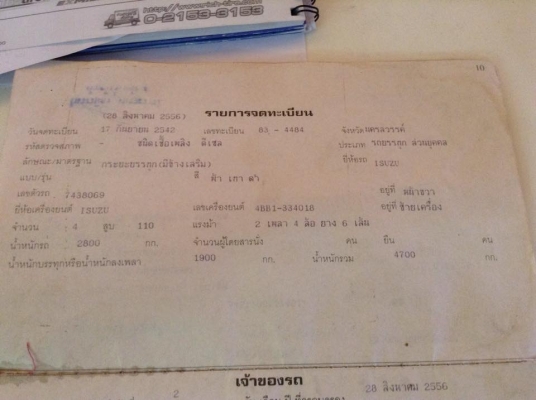 0-2153-8153
10
(28 สิงหาคม 2556) รายการจดทะเบียน
วันจดทะเบียน 17 กันยายน 2542 เลขทะเบียน 83 - 4484 จังหวัด นครสวรรค์
รหัสตรวจสภาพ - ชนิดเชื้อเพลิง ดีเซล ประเภท รถบรรทุก ส่วนบุคคล
ลักษณะ/มาตรฐาน กระบะบรรทุก(มีข้างเสริม) ยี่ห้อรถ ISUZU
แบบ/รุ่น สี ฟ้า เทา ดำ
เลขตัวรถ 7438069 อยู่ที่ คัสซีขวา
ยี่ห้อเครื่องยนต์ ISUZU เลขเครื่องยนต์ 4BB1-334018 อยู่ที่ ซ้ายเครื่อง
จำนวน 4 สูบ 110 แรงม้า 2 เพลา 4 ล้อ ยาง 6 เส้น
น้ำหนักรถ 2800 กก. จำนวนผู้โดยสารนั่ง คน ยืน คน
น้ำหนักบรรทุกหรือน้ำหนักลงเพลา 1900 กก. น้ำหนักรวม 4700 กก.
เจ้าของรถ
2 28 สิงหาคม 2556